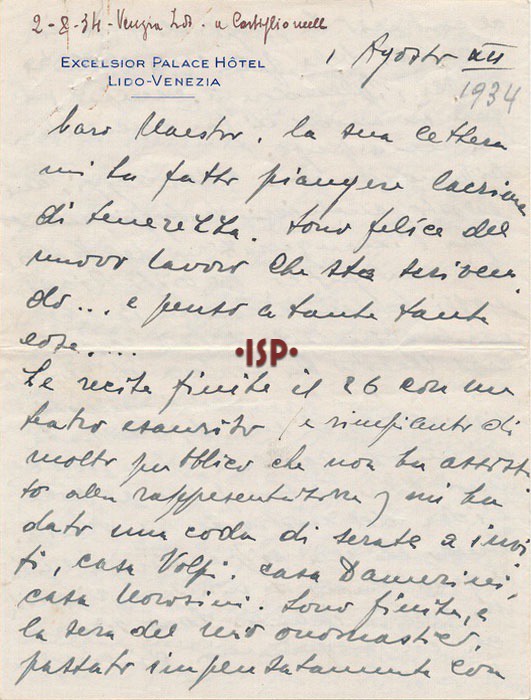 2-8-34-Venezia Lido- a Castiglioncell
EXCELSIOR PALACE HÔTEL
LIDO-VENEZIA
1 Agosto XII
1934
Caro Maestro, la sua lettera
mi ha fatto piangere lacrime
di tenerezza. Sono felice del
nuovo lavoro che sta scriven
do... e penso a tante tante
cose....
•ISP•
Le recite finite il 26 con un
teatro esaurito (e rimpianto di
molto pubblico che non ha assisti
to alla rappresentazione) mi ha
dato una coda di serate a invi
ti, casa Volpi, casa Damerini,
casa Morosini. Sono finite, e
la sera del mio onomastico,
passato impensatamente con